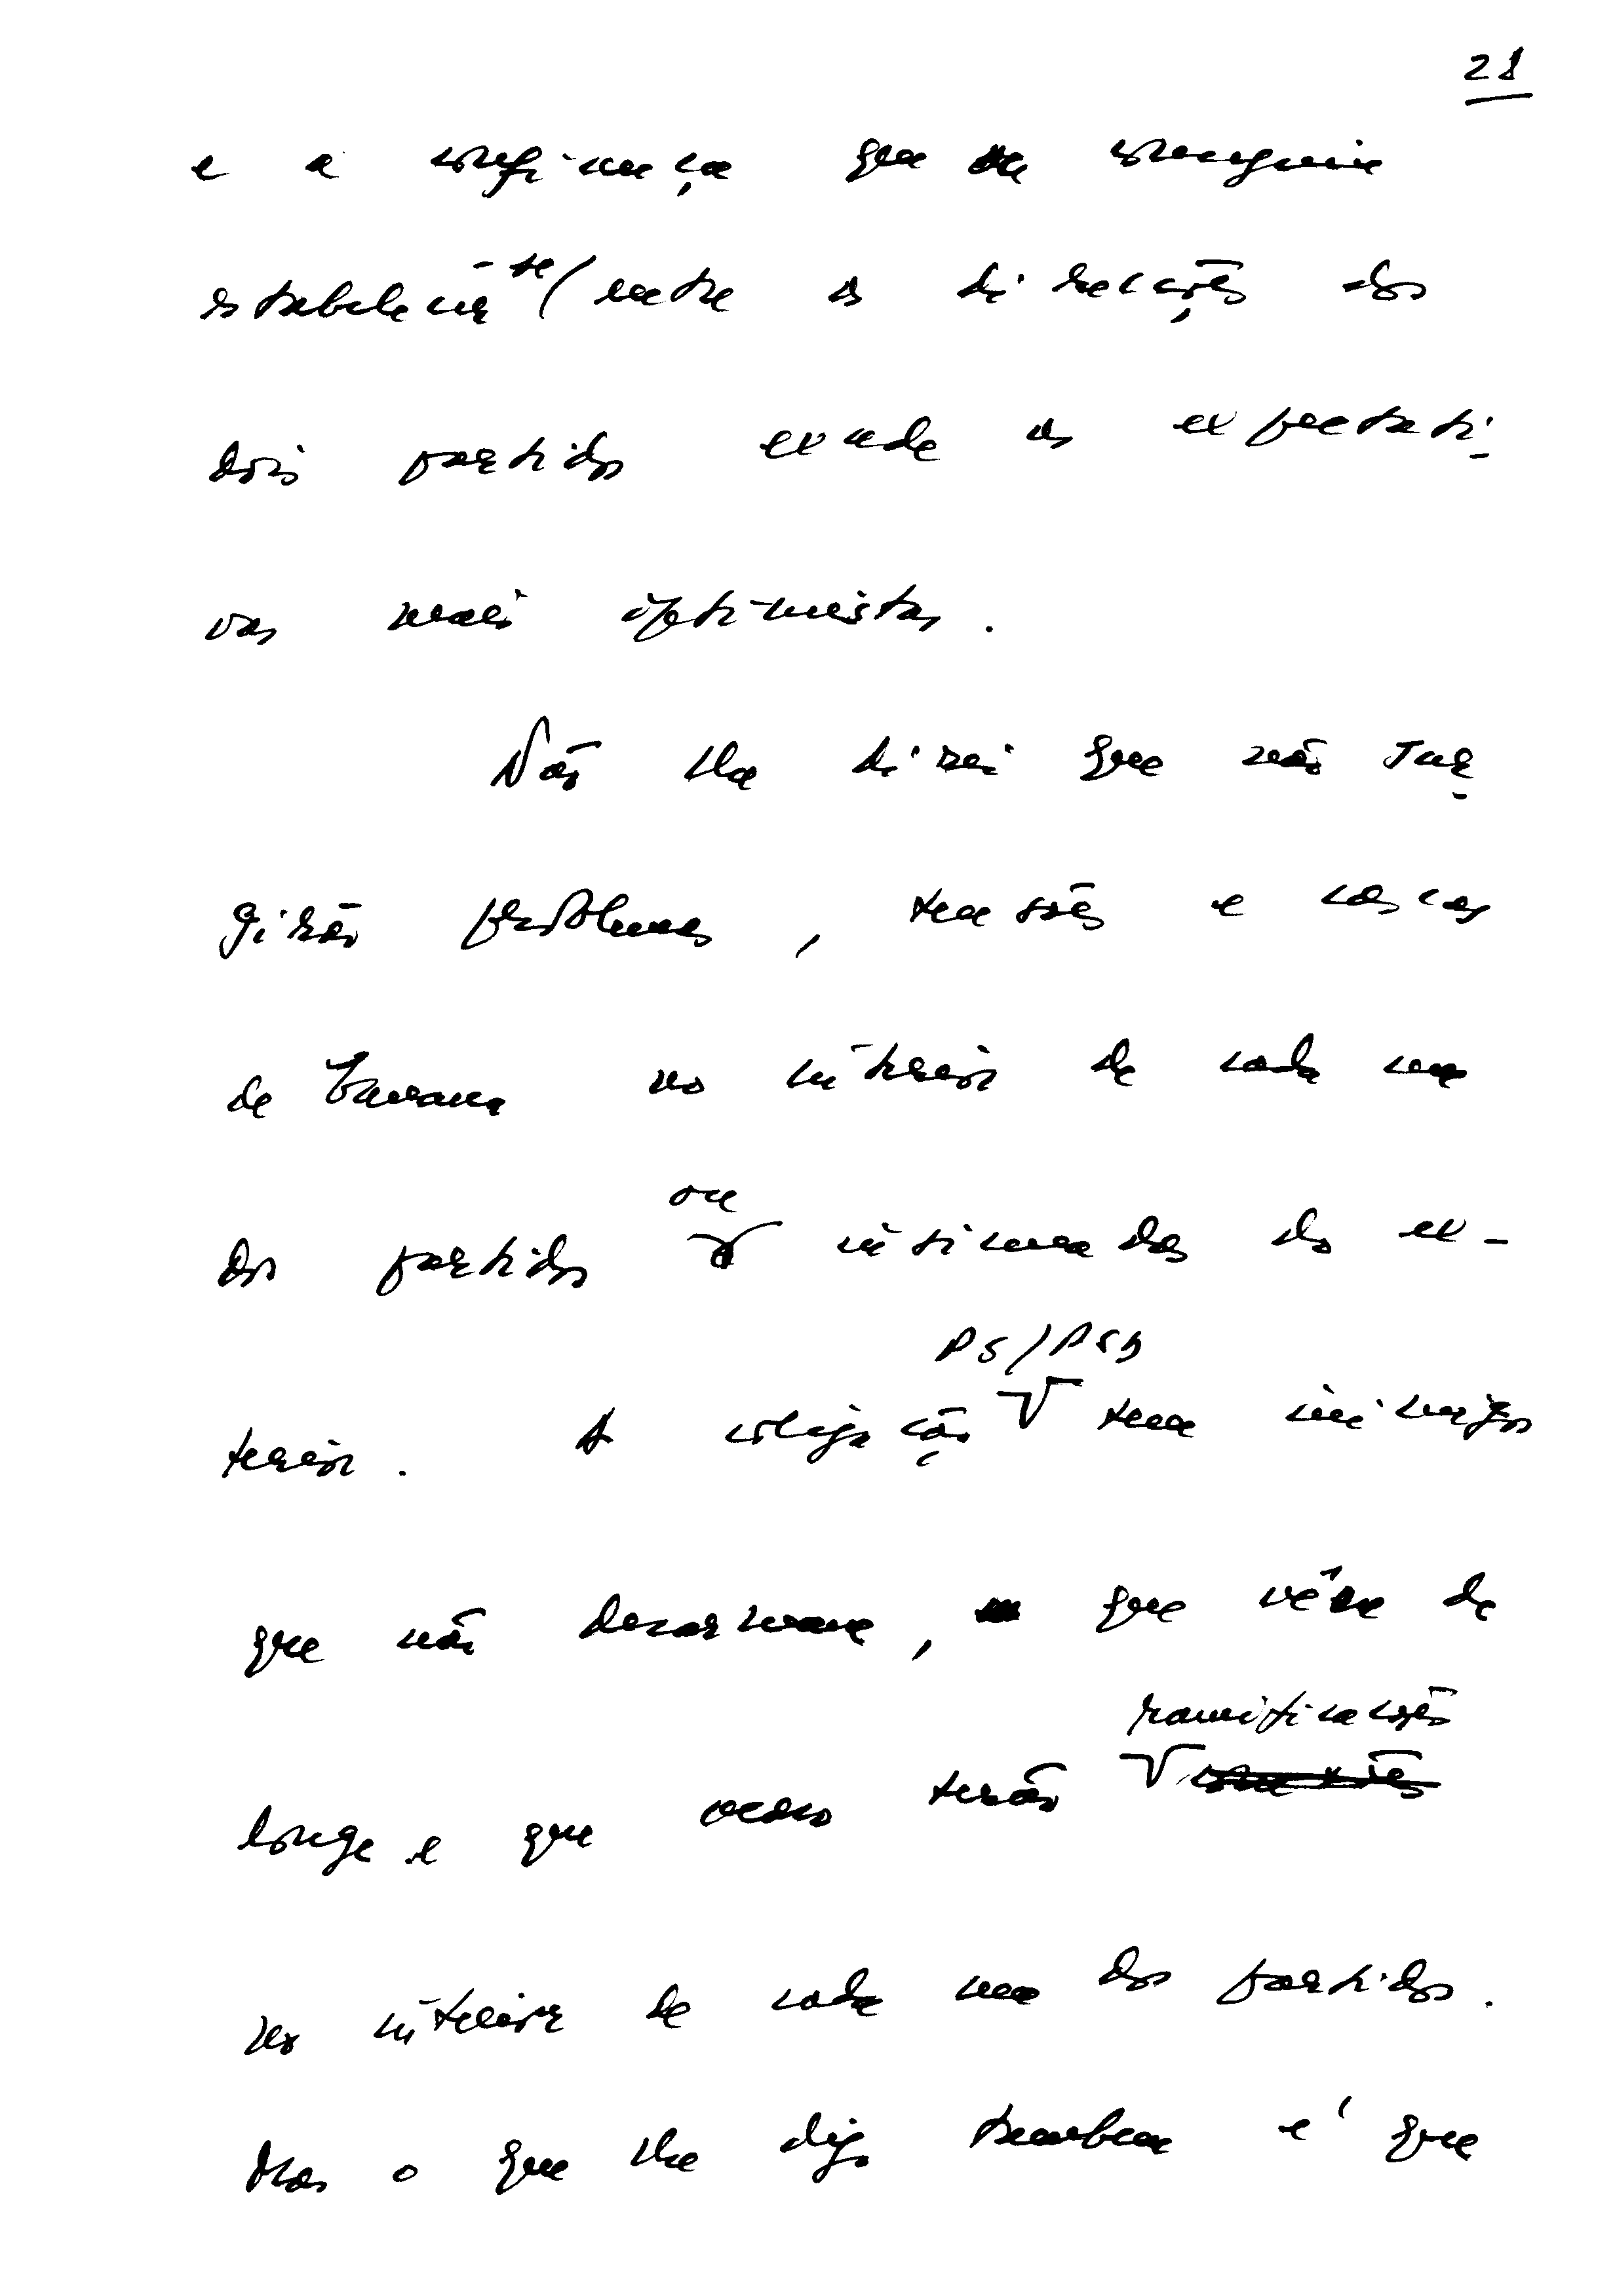 21
e a confiança que se conseguiu
estabelecer-se entre as direcções dos
dois partidos excede as expectati-
vas mais optimistas.
Não lhe direi que não sur-
girão problemas, tensões e cascas
de banana no interior de cada um
dos partidos ou insinuadas do ex-
terior. A coligação PS/PSD tem inimigos
que não desarmam, que vêm de
longe e que acaso terão ramificações
no interior de cada um dos partidos.
Mas o que lhe digo também é que